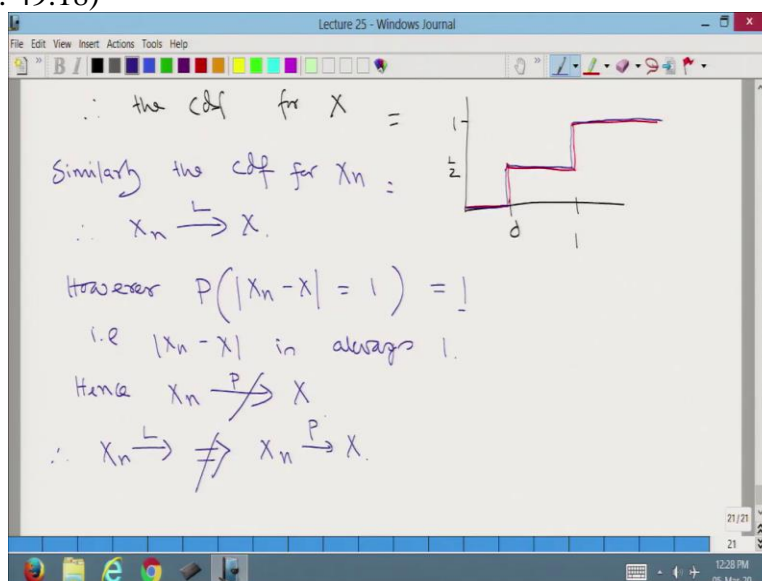 : 49:18)
Lecture 25 - Windows Journal
File Edit View Insert Actions Tools Help
B I
∴ the cdf for X =
1
1/2
0
1
Similarly the cdf for Xn :
∴ Xn L→ X.
However P(|Xn - X| = 1) = 1
i.e |Xn - X| in always 1.
Hence Xn P↛ X
∴ Xn L→ ⇏ Xn P→ X.
21/21
21
12:28 PM